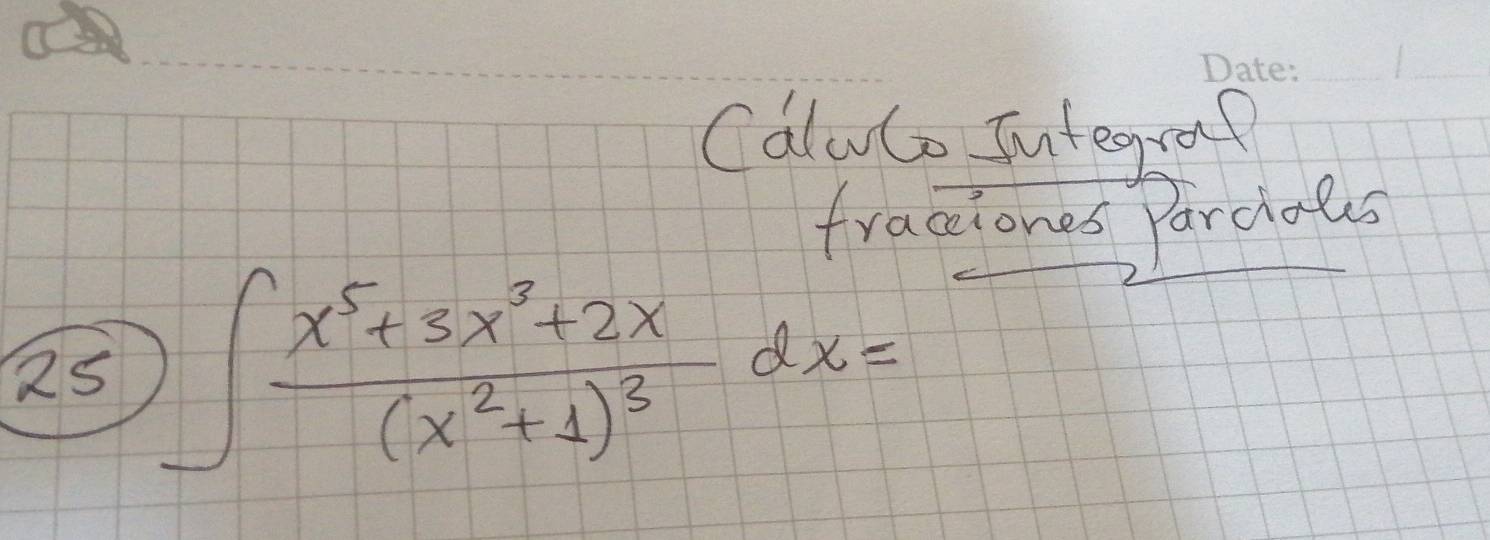 Date: /
Cálculo Integral
fracciones Parciales
25 ∫ x⁵+3x³+2x / (x²+1)³ dx =